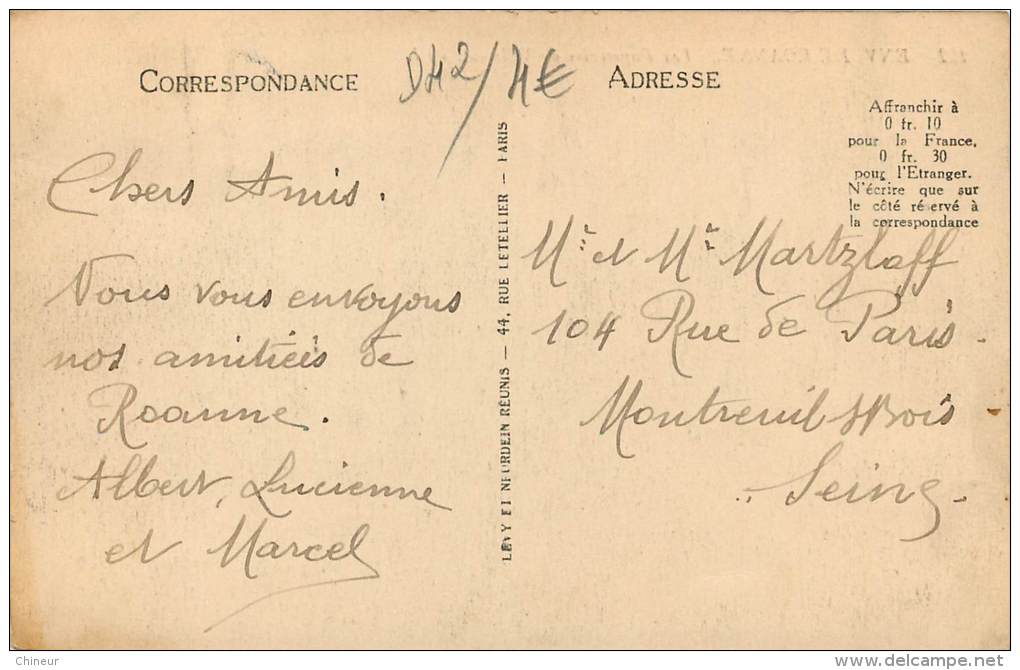 CORRESPONDANCE
D42/4€
ADRESSE
Affranchir à
0 fr. 10
pour la France,
0 fr. 30
pour l'Etranger.
N'écrire que sur
le côté réservé à
la correspondance
Chers Amis.
Nous vous envoyons
nos amitiéis de
Roanne.
Albert, Lucienne
et Marcel
LÉVY ET NEURDEIN RÉUNIS — 44, RUE LETELLIER — PARIS
Mr et Mr Martzlaff
104 Rue de Paris.
Montreuil s/Bois
Seine.
Chineur
http://www.delcampe.net